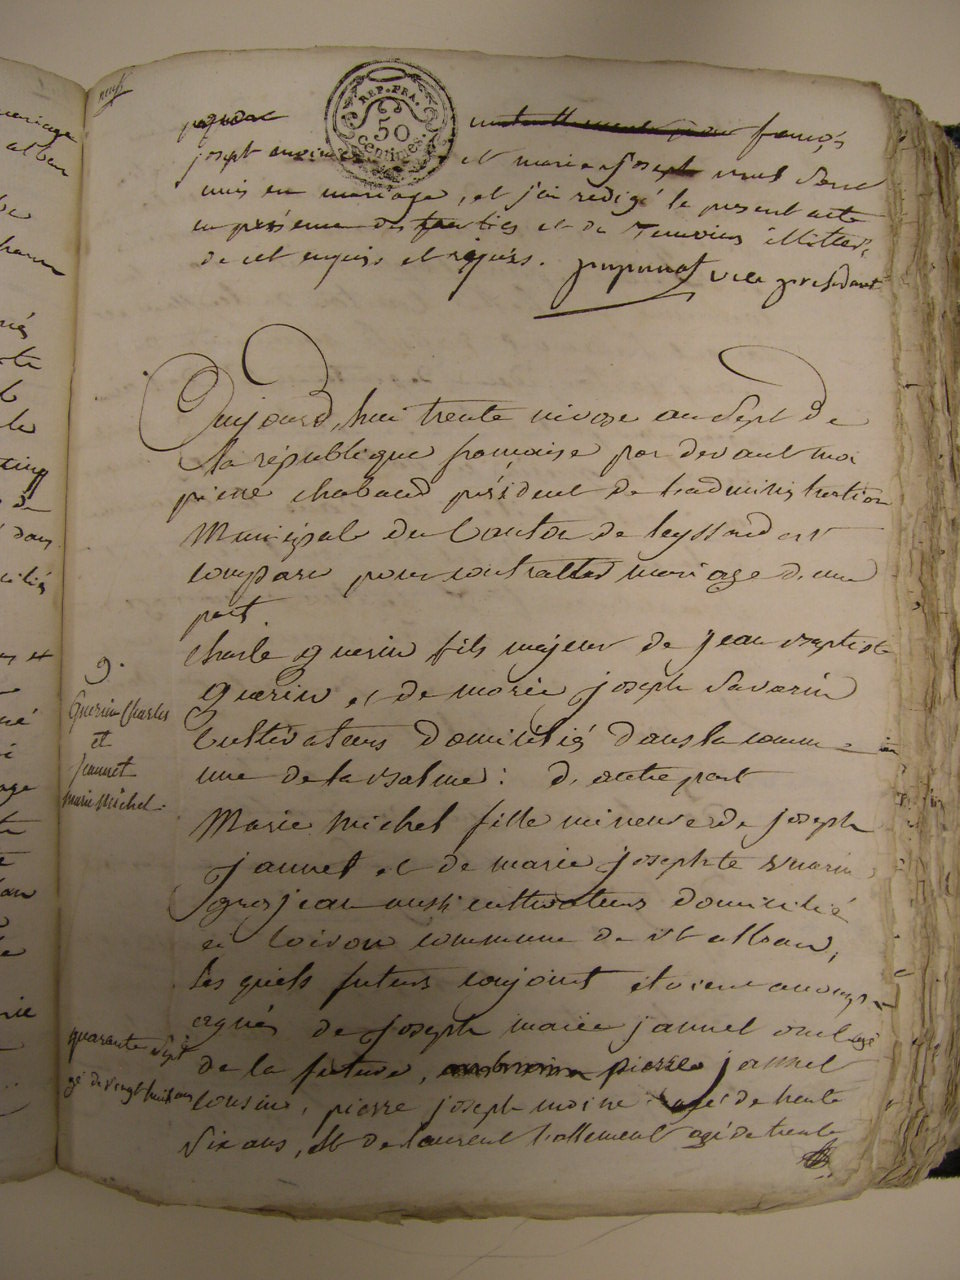 neuf
REP. FRA.
50
centimes
françois
joseph et marie joseph sont
unis en mariage, et j'ai redigé le present acte
en présence des parties et de temoins
de cet enquis et requis. vice president
Aujourd'hui trente nivose an sept de
la république francaise par devant moi
pierre chabaud président de l'administration
Municipale du Canton de leyssard est
comparu pour contratter mariage d'une
part
charle guerin fils majeur de jean baptiste
guerin et de marie joseph savarin
Cultivateurs domiciliés dans la comm
une de la balme : d'autre part
9.
Guerin Charles
et
Jannet
marie Michel.
Marie Michel fille mineure de joseph
jannet et de marie josephte
grosjean aussi cultivateurs domicilié
commune de st alban,
les quels futurs conjoint etoient accomp
agnés de joseph marie jannet oncle agé
quarante sept
de la future, pierre jannet
gé de vingt huit ans
cousin, pierre joseph moine agé de trente
six ans, et de laurent agé de trente